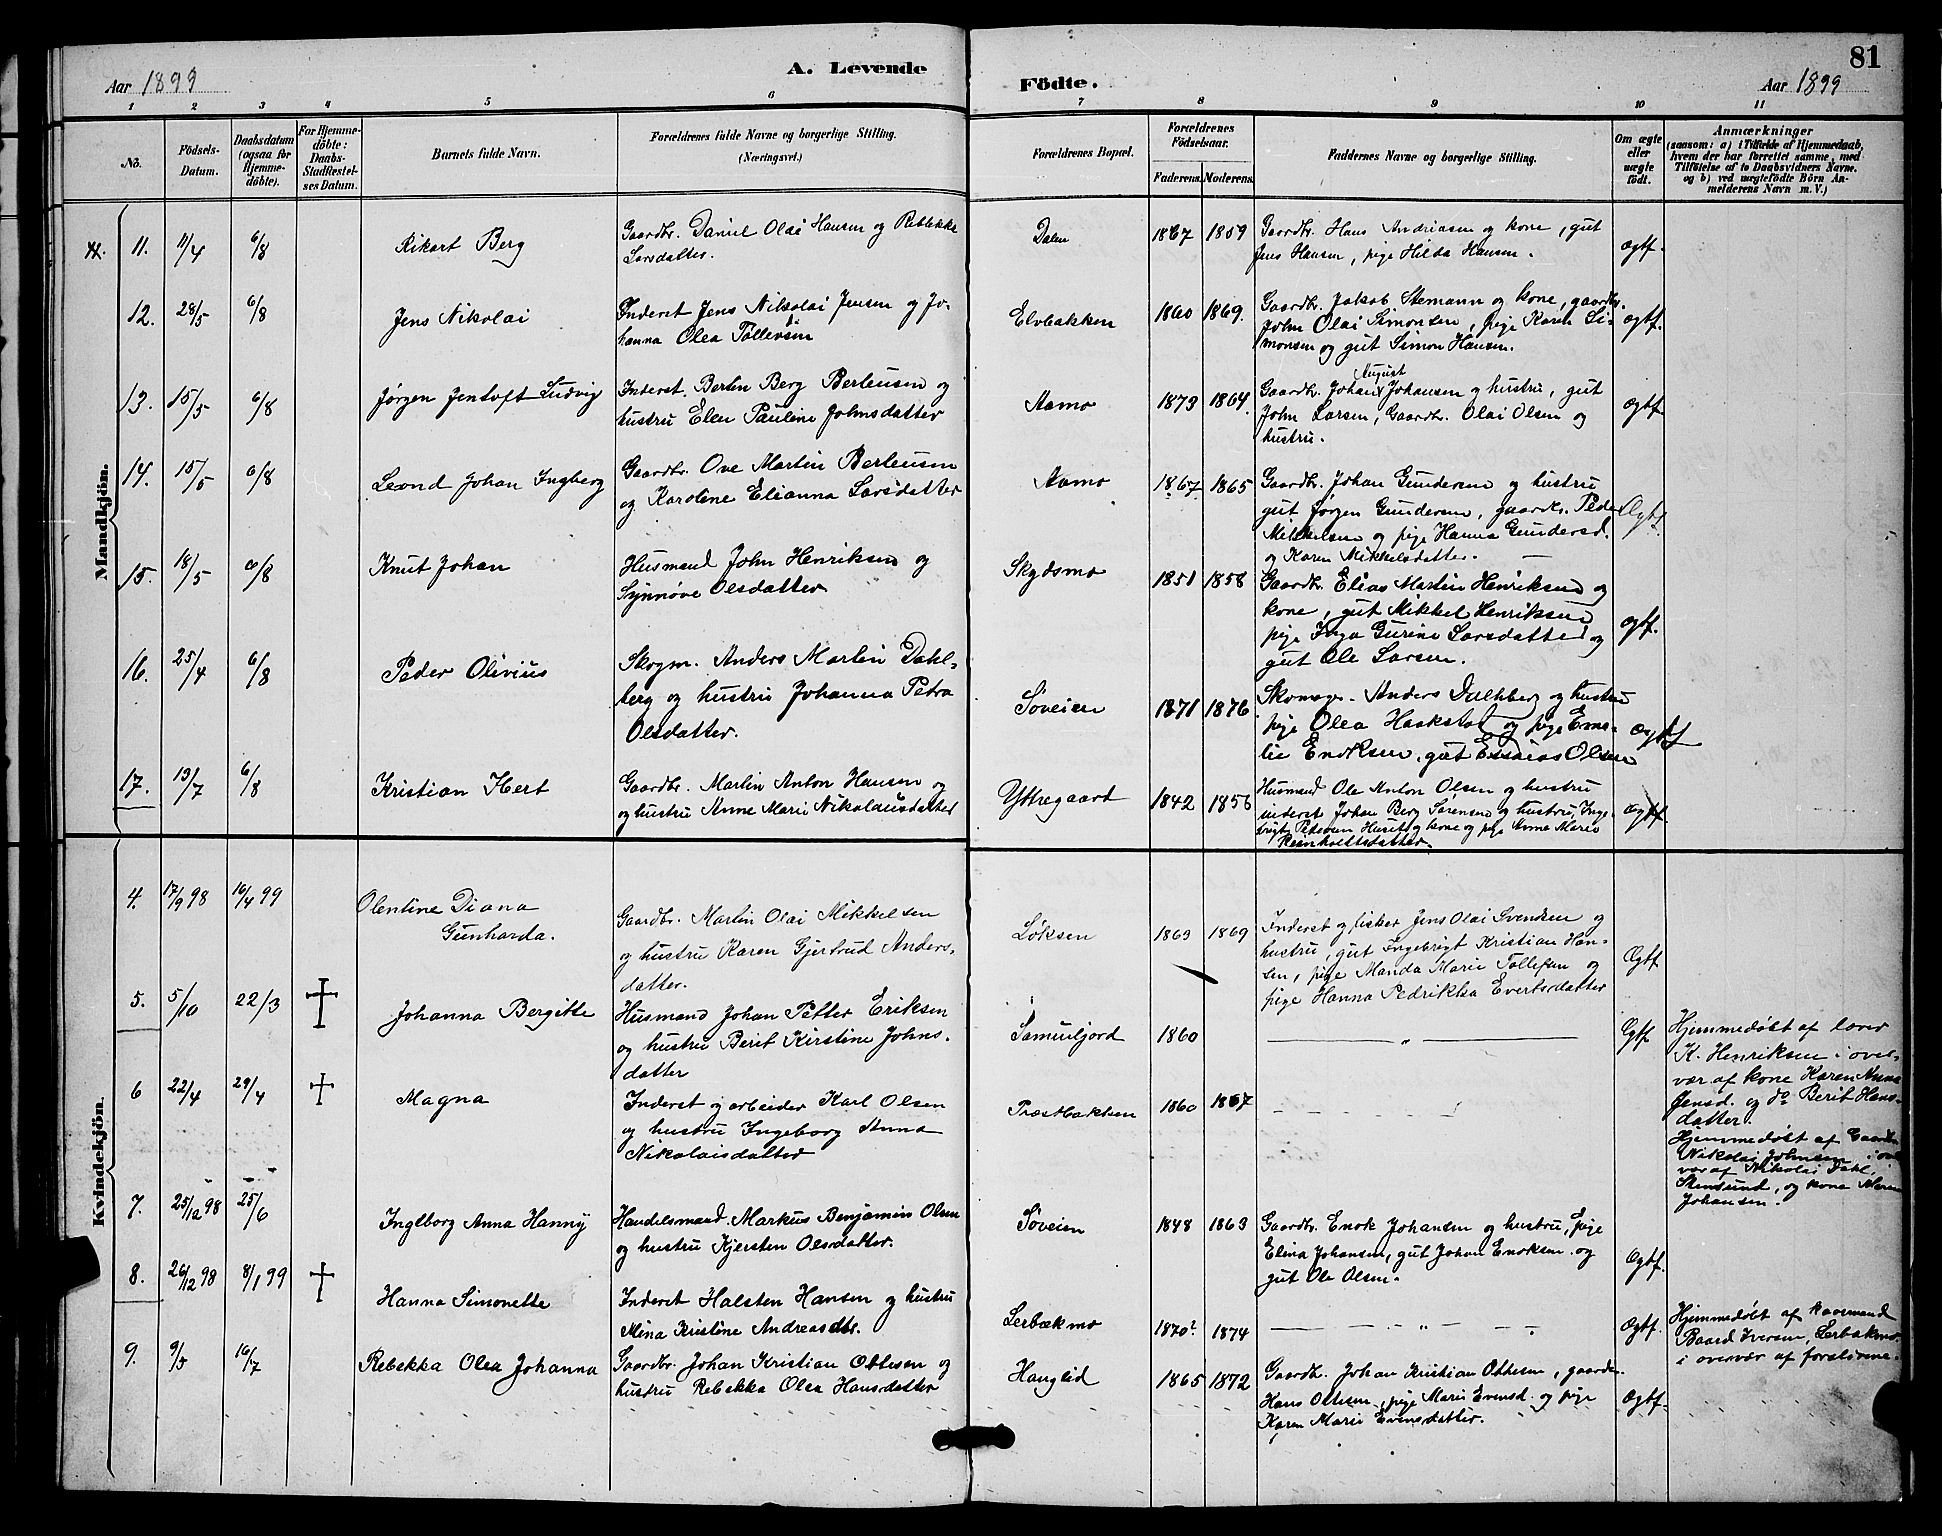 81
Aar 1899
A. Levende
Födte.
Aar 1899
1 2 3 4 5 6 7 8 9 10 11
No.
Födsels-
Datum.
Daabsdatum
(ogsaa for
Hjemme-
döbte).
For Hjemme-
döbte:
Daabs-
Stadfæstel-
ses Datum.
Barnets fulde Navn.
Forældrenes fulde Navne og borgerlige Stilling.
(Næringsvei.)
Forældrenes Bopæl.
Forældrenes
Födselsaar.
Faderens. Moderens.
Faddernes Navne og borgerlige Stilling.
Om ægte
eller
uægte
födt.
Anmærkninger
(saasom: a) i Tilfælde af Hjemmedaab,
hvem der har forrettet samme, med
Tilföielse af to Daabsvidners Navne.
og b) ved uægtefödte Börn An-
melderens Navn m. V.)
Mandkjön.
11. 11/4 6/8
Rikart Berg
Gaardbr. Daniel Olai Hansen og Rebekka
Larsdatter.
Dalen
1867 1859
Gaardbr. Hans Andriasen og kone, gut
Jens Hansen, pige Hilda Hansen.
Ægtf.
12. 28/5 6/8
Jens Nikolai
Inderst Jens Nikolai Jensen og Jo-
hanna Olea Tollevsen
Elvebakken
1860 1869.
Gaardbr. Jakob Stemann og kone, gaardbr.
John Olai Simonsen, pige Karen Si-
monsen og gut Simon Hansen.
Ægtf.
13. 15/5 6/8
Jørgen Jentoft Ludvig
Inderst. Bertin Berg Berteusen og
hustru Elen Pauline Johnsdatter
Aamo
1873 1864
August
Gaardbr. Johan Johansen og hustru, gut
John Larsen, Gaardbr. Olai Olsen og
hustru.
Ægtf
14. 15/5 6/8
Leond Johan Ingberg
Gaardbr. Ove Martin Berteusen
og Karoline Elianna Larsdatter
Aamo
1867 1865
Gaardbr. Johan Gundersen og hustru
gut Jørgen Gundersen, gaardbr. Peder
Mikkelsen og pige Hanna Gundersd.
og Karen Mikkelsdatter.
Ægtf.
15. 18/5 6/8
Knut Johan
Husmand John Henriksen og
Synnøve Olsdatter
Skydsmo
1851 1858
Gaardbr. Elias Martin Henriksen og
kone, gut Mikkel Henriksen
pige Inga Gurine Larsdatter og
gut Ole Larsen.
Ægtf.
16. 25/4 6/8
Peder Olivius
Skogm. Anders Martin Dahl-
berg og hustru Johanna Petra
Olsdatter.
Søveien
1871 1876
Skomag. Anders Dalhberg og hustru
pige Olea Haakstad og pige Eme-
lie Enoksen, gut Essaias Olsen
Ægtf
17. 19/7 6/8
Kristian Hert
Gaardbr. Martin Anton Hansen og
og hustru Anne Marie Nikolausdatter
Yttregaard
1842 1856
Husmand Ole Anton Olsen og hustru
inderst Johan Berg Sørensen og hustru, Inge-
brigt Pedersen Huset og kone og pige Anne Marie
Reinholdtsdatter.
Ægtf.
Kvindekjön.
4. 17/9 98 16/4 99
Olentine Diana
Gunharda.
Gaardbr. Martin Olai Mikkelsen
og hustru Karen Gjertrud Anders-
datter.
Løksen
1869 1869
Inderst og fisker Jens Olai Svendsen og
hustru, gut Ingebrigt Kristian Han-
sen, pige Manda Marie Tollefsen og
pige Hanna Pedrikka Evertsdatter
Ægtf
5. 5/10 22/3
Johanna Bergitte
Husmand Johan Petter Eriksen
og hustru Berit Kirstine Johns-
datter
1860
Ægtf
Hjemmedøbt af lærer
K. Henriksen i over-
vær af kone Karen Anna
Jensd. og do Berit Hans-
datter.
6 22/4 29/4
Magna
Inderst og arbeider Karl Olsen
og hustru Ingeborg Anna
Nikolaisdatter
Præstbakken
1860 1867
Hjemmedøbt af Gaardbr.
Nikolai Johnsen i over
vær af Nikolai Dahl,
Stensund, og kone Maren
Johansen.
7. 25/12 98 25/6
Ingeborg Anna Hanny
Handelsmand. Markus Benjamin Olsen
og hustru Kjersten Olsdatter.
Søveien
1848 1863
Gaardbr. Enok Johansen og hustru, pige
Elina Johansen, gut Johan Enoksen og
gut Ole Olsen.
Ægtf.
8. 26/12 98 8/1 99
Hanna Simonette
Inderst Halsten Hansen og hustru
Mina Kristine Andreasdtr.
Lerbækmo
1870? 1874
Ægtf.
Hjemmedøbt af kaarmand
Baard Iversen, Lerbækmo
i overvær af forældrene.
9. 9/5 16/7
Rebekka Olea Johanna
Gaardbr. Johan Kristian Ottesen og
hustru Rebekka Olea Hansdatter
Hanglid
1865 1872
Gaardbr. Johan Kristian Ottesen, gaardbr.
Hans Ottesen, pige Marie Evensd. og pige
Karen Marie Evensdatter.
Ægtf.